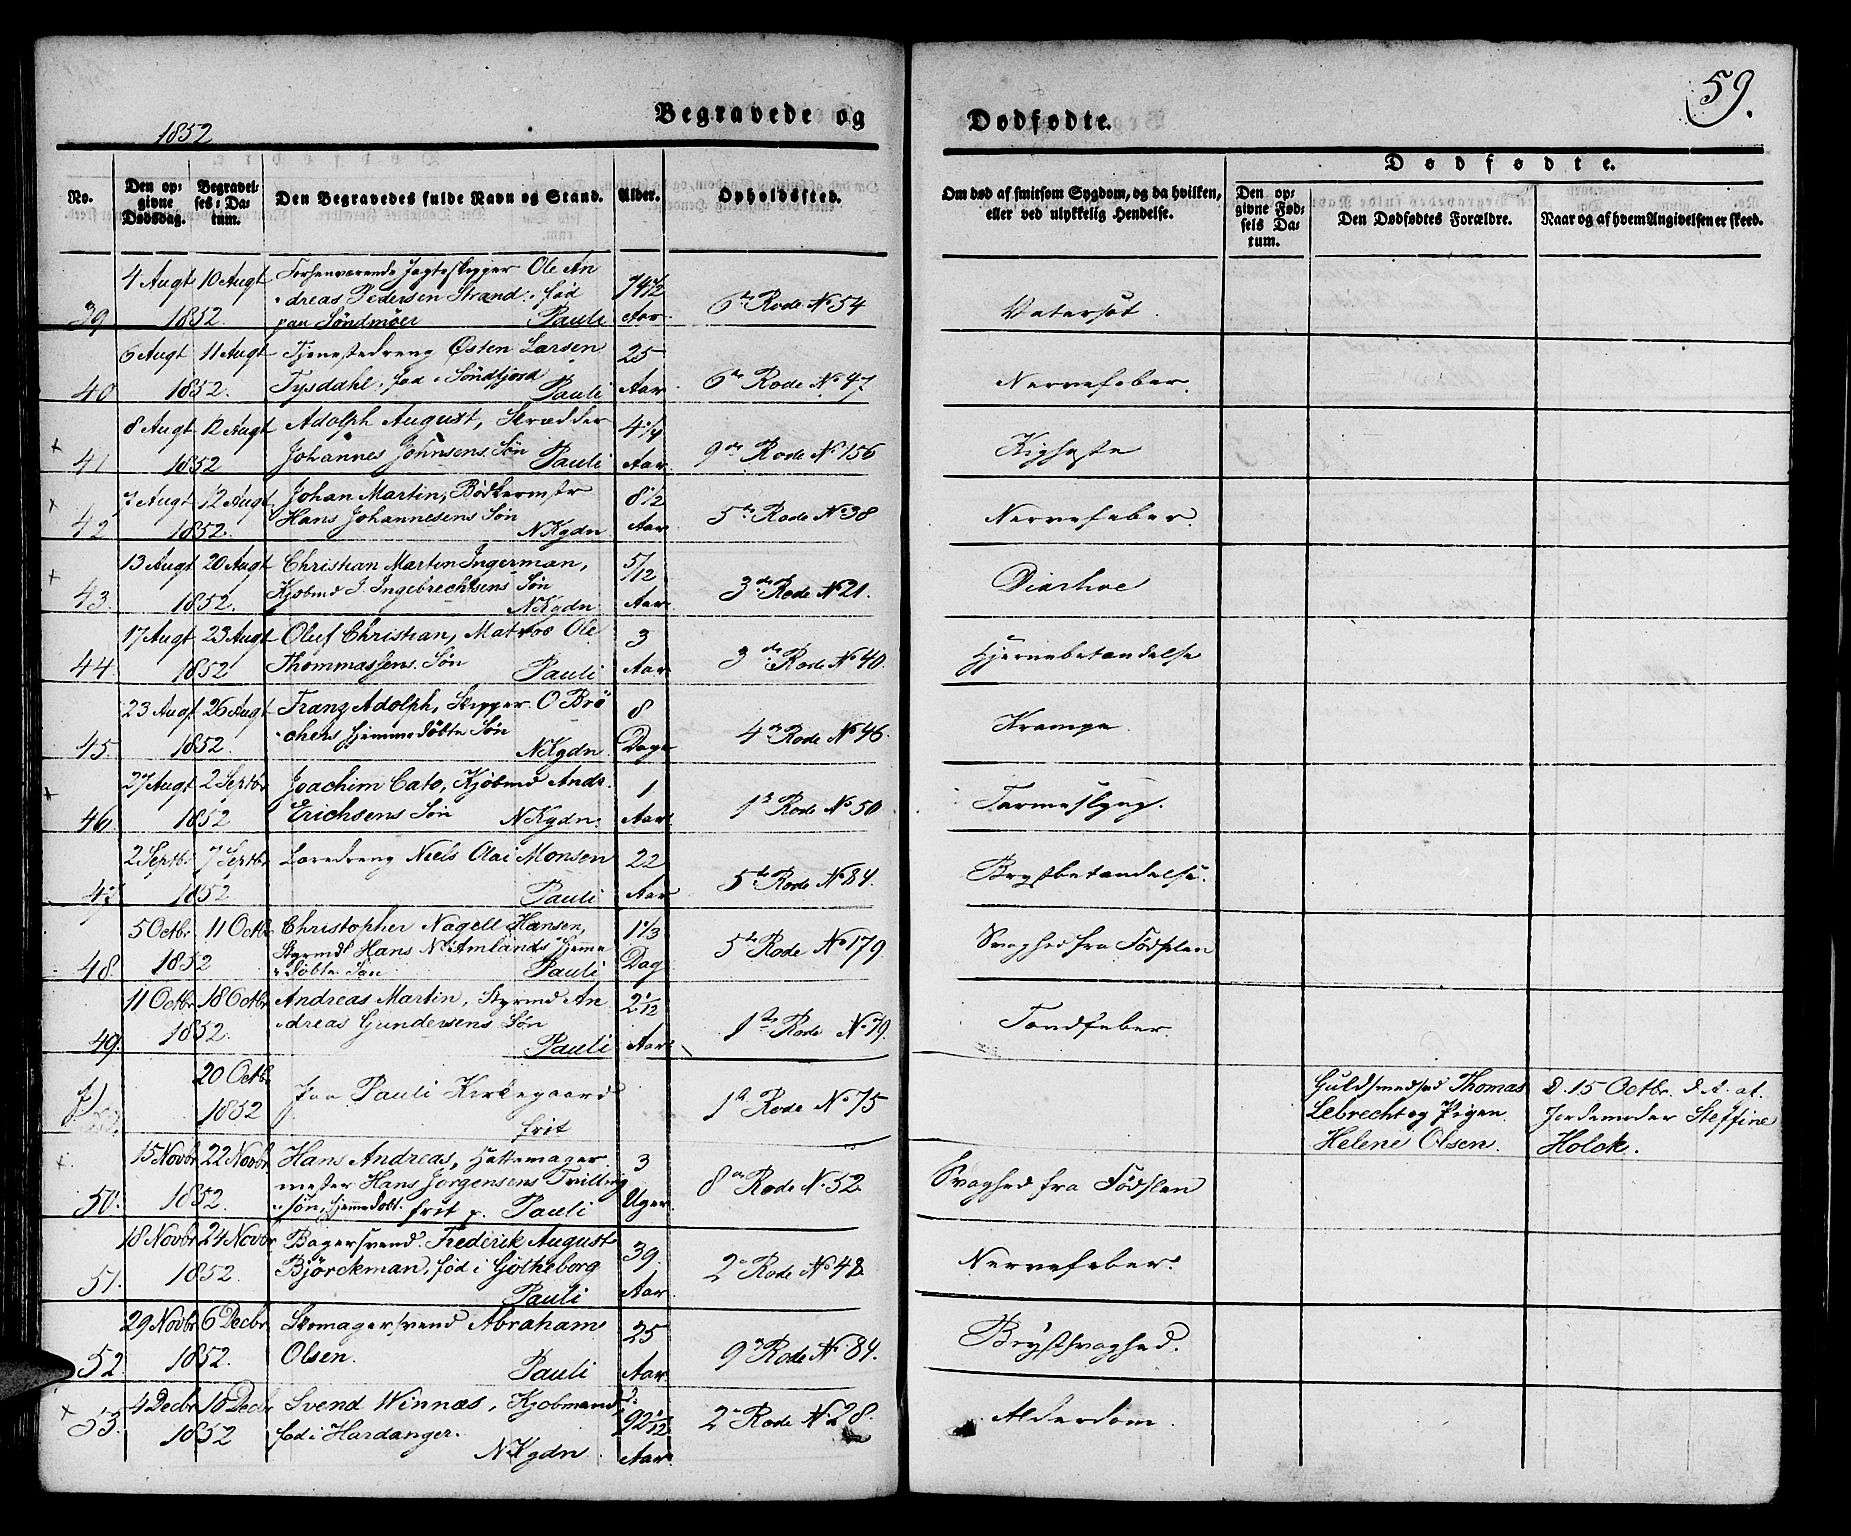 59.
1852
Begravede og Dødfødte.
No.
Den opgivne Dødsdag.
Begravelses-Datum.
Den Begravedes fulde Navn og Stand.
Alder.
Opholdssted.
Om død af smitsom Sygdom, og da hvilken, eller ved ulykkelig Hendelse.
Dødfødte.
Den opgivne Fødsels Datum.
Den Dødfødtes Forældre.
Naar og af hvem Angivelsen er skeed.
39 4 Augt 10 Augt 1852. Forhenværende Jagteskipper Ole An
dreas Pedersen Strand, fød
paa Søndmøer Pauli
74 1/2 Aar 6te Rode No 54 Vatersot.
40 6 Augt 11 Augt 1852. Tjenestedreng Østen Larsen
Tysdahl, fød i Søndfjord Pauli
25 Aar 6te Rode No 47. Nervefeber.
+ 41 8 Augt 12 Augt 1852 Adolph August, Skrædder
Johannes Johnsens Søn Pauli
4 1/4 Aar 9de Rode No 156 Kighoste
+ 42 7 Augt 12 Augt 1852. Johan Martin, Bødkermstr
Hans Johannesens Søn NKgdn
8 1/2 Aar 5te Rode No 38 Nervefeber.
+ 43. 13 Augt 20 Augt 1852. Christian Martin Ingerman,
Kjøbmd J. Ingebrechtsens Søn NKgdn
5/12 Aar 3de Rode No 21. Diarhoe
44. 17 Augt 23 Augt 1852 Oluf Christian, Matros Ole
Thommassens Søn Pauli
3 Aar 3de Rode No 40. Hjernebetændelse
45. 23 Augt 26 Augt 1852. Franz Adolph, Skipper O Brö
chers hjemmedøbte Søn NKgdn.
8 Dage 4de Rode No 46. Krampe.
+ 46. 27 Augt 2 Septbr 1852 Joachim Cato, Kjøbmd Ands.
Erichsens Søn NKgdn.
1 Aar. 1ste Rode No 50
47 2 Septbr 7 Septbr 1852 Niels Olai Monsen
Pauli
22 Aar 5te Rode No 84. Brystbetændelse.
48 5 Octbr 11 Octbr 1852 Christopher Nagell Hansen,
Styrmd Hans N. Amlands hjemme
døbte Søn Pauli
1 1/3 Dag 5te Rode No 179. Svaghed fra Fødslen
49. 11 Octbr 18 Octbr 1852. Andreas Martin, Styrmd An
dreas Gundersens Søn
Pauli
2 1/12 Aar 1ste Rode No 79. Tandfeber.
20 Octbr 1852 Paa Pauli Kirkegaard
frit
1ste Rode No 75
Guldsmedsvd Thomas
Lebrecht og Pigen
Helene Olsen.
D. 15 Octbr. d. A. af
Jordemoder Steffine
Holck.
+ 50. 15 Novbr 22 Novbr 1852. Hans Andreas, Hattemager
mester Hans Jørgensens Tvilling
søn, hjemmedøbt. frit p. Pauli
3 Uger. 8de Rode No 52. Svaghed fra Fødslen
51. 18 Novbr 24 Novbr 1852. Bagersvend Frederik August
Björckman, fød i Gøtheborg
Pauli
39. Aar. 2den Rode No 48. Nervefeber.
52 29 Novbr 6 Decbr 1852. Skomagersvend Abraham
Olsen. Pauli
25 Aar. 9de Rode No 84. Brystsvaghed.
+ 53. 4 Decbr 10 Decbr 1852 Svend Winnæs, Kjøbmand,
fød i Hardanger.
NKgdn
92 1/12 Aar. 2den Rode No 28. Alderdom.